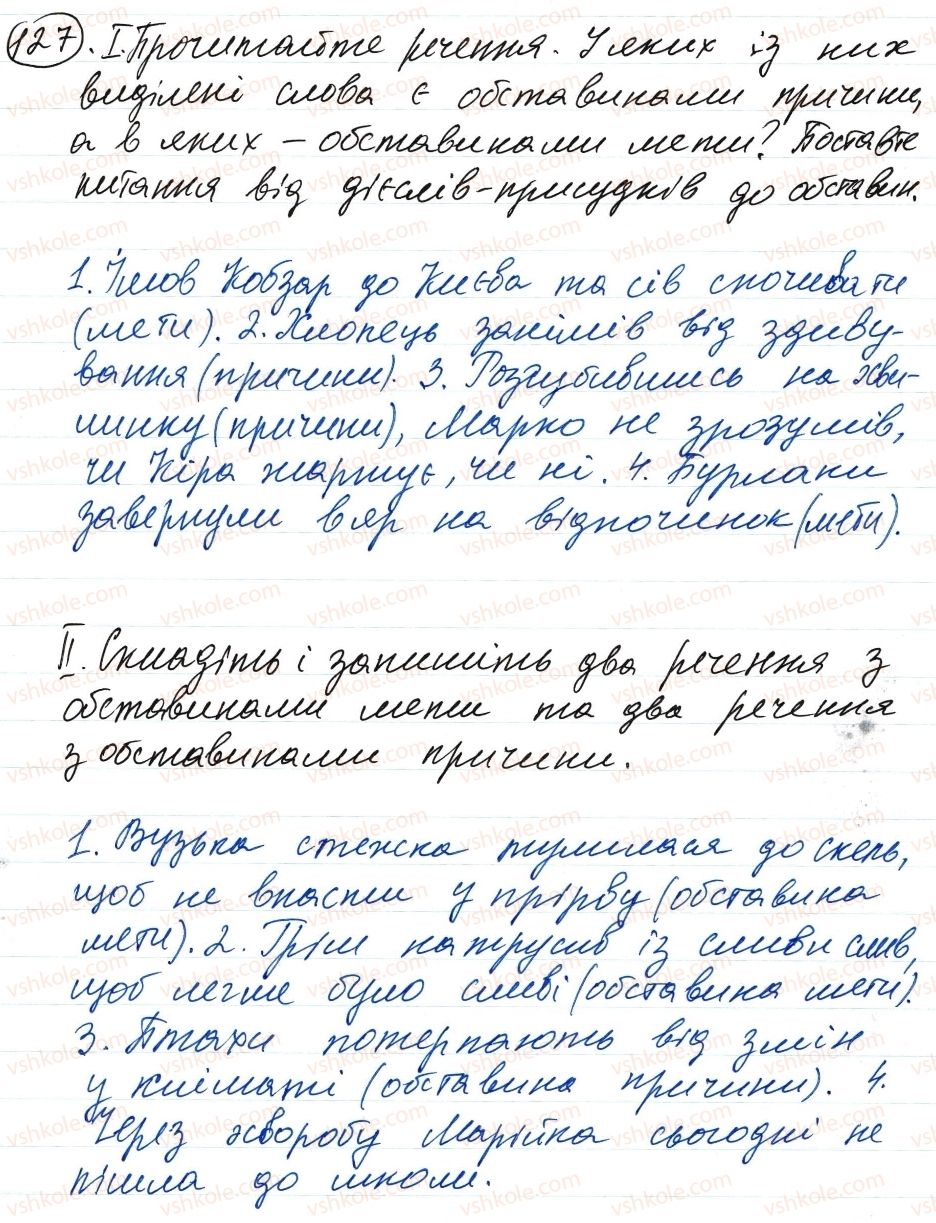 127. І. Прочитайте речення. У яких із них
виділені слова є обставинами причини,
а в яких – обставинами мети? Поставте
питання від дієслів-присудків до обставин.
1. Ішов Кобзар до Києва та сів спочивати
(мети). 2. Хлопець занімів від здиву-
вання (причини). 3. Розгубившись на хви-
линку (причини), Марко не зрозумів,
чи Кіра жартує, чи ні. 4. Бурлаки
завернули в яр на відпочинок (мети).
ІІ. Складіть і запишіть два речення з
обставинами мети та два речення
з обставинами причини.
1. Вузька стежка тулилася до скель,
щоб не впасти у прірву (обставина
мети). 2. Грім натрусив із сливи слив,
щоб легше було сливі (обставина мети).
3. Птахи потерпають від змін
у кліматі (обставина причини). 4.
Через хворобу Марійка сьогодні не
пішла до школи.